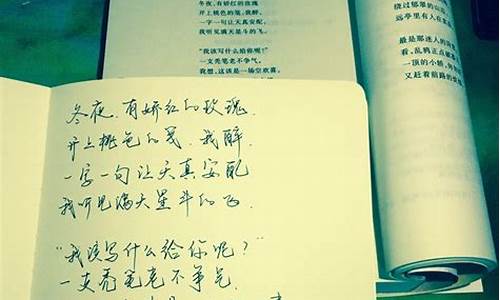 冬夜，有娇红的玫瑰
开上桃色的笺，我醉，
一字一句让天真安配，
我听见满天星斗的飞。
“我该写什么给你呢？”
一支秃笔老不争气，
我想，这该是一场空欢喜，
绕过郁翠的山
远亭里有人在
最是那迷人的
看，乱鸦正点破
一顶的小轿，
又赶着前路的
冬夜,有娇红的玫瑰.
开上桃色的笺.我醉.
一字一句让天真安配
我听见满天星斗的飞.
“我该写什么给你呢？”
一支秃笔老不争气.